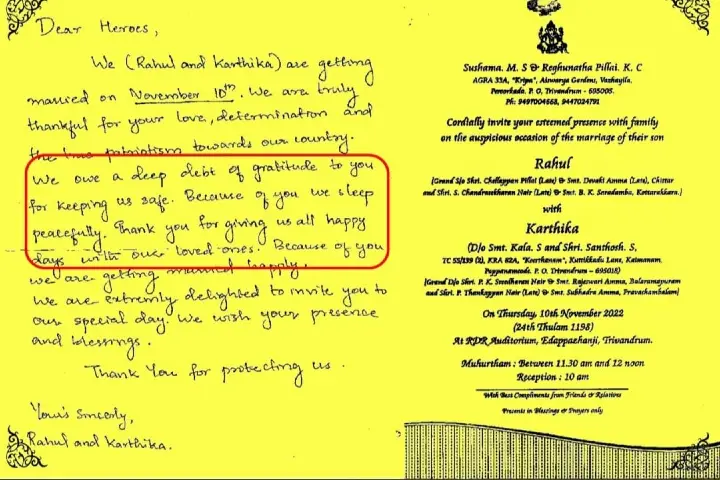 Dear Heroes,
We (Rahul and Karthika) are getting
married on November 10th. We are truly
thankful for your love, determination and
the true patriotism towards our country.
We owe a deep debt of gratitude to you
for keeping us safe. Because of you we sleep
peacefully. Thank you for giving us all happy
days with our loved ones. Because of you
we are getting married happily.
We are extremely delighted to invite you to
our special day. We wish your presence
and blessings.
Thank You for protecting us.
Your's Sincerely,
Rahul and Karthika.
Sushama. M. S & Reghunatha Pillai. K. C
AGRA 33A, "Kripa", Aiswarya Gardens, Vazhayila,
Peroorkada. P. O, Trivandrum - 695005.
Ph: 9497004663, 9447024791
Cordially invite your esteemed presence with family
on the auspicious occasion of the marriage of their son
Rahul
(Grand S/o Shri. Chellappan Pillai (Late) & Smt. Devaki Amma (Late), Chittar
and Shri. S. Chandrasekharan Nair (Late) & Smt. B. K. Saradamba, Kottarakkara.)
with
Karthika
(D/o Smt. Kala. S and Shri. Santhosh. S,
TC 55/139 (2), KRA 62A, "Keerthanam", Kuttikkadu Lane, Kaimanam,
Pappanamcode. P. O. Trivandrum - 695018)
(Grand D/o Shri. P. K. Sreedharan Nair & Smt. Rajeswari Amma, Balaramapuram
and Shri. P. Thankappan Nair (Late) & Smt. Subhadra Amma, Pravachambalam)
On Thursday, 10th November 2022
(24th Thulam 1198)
At RDR Auditorium, Edappazhanji, Trivandrum.
Muhurtham : Between 11.30 am and 12 noon
Reception : 10 am
With Best Compliments from Friends & Relations
Presents in Blessings & Prayers only